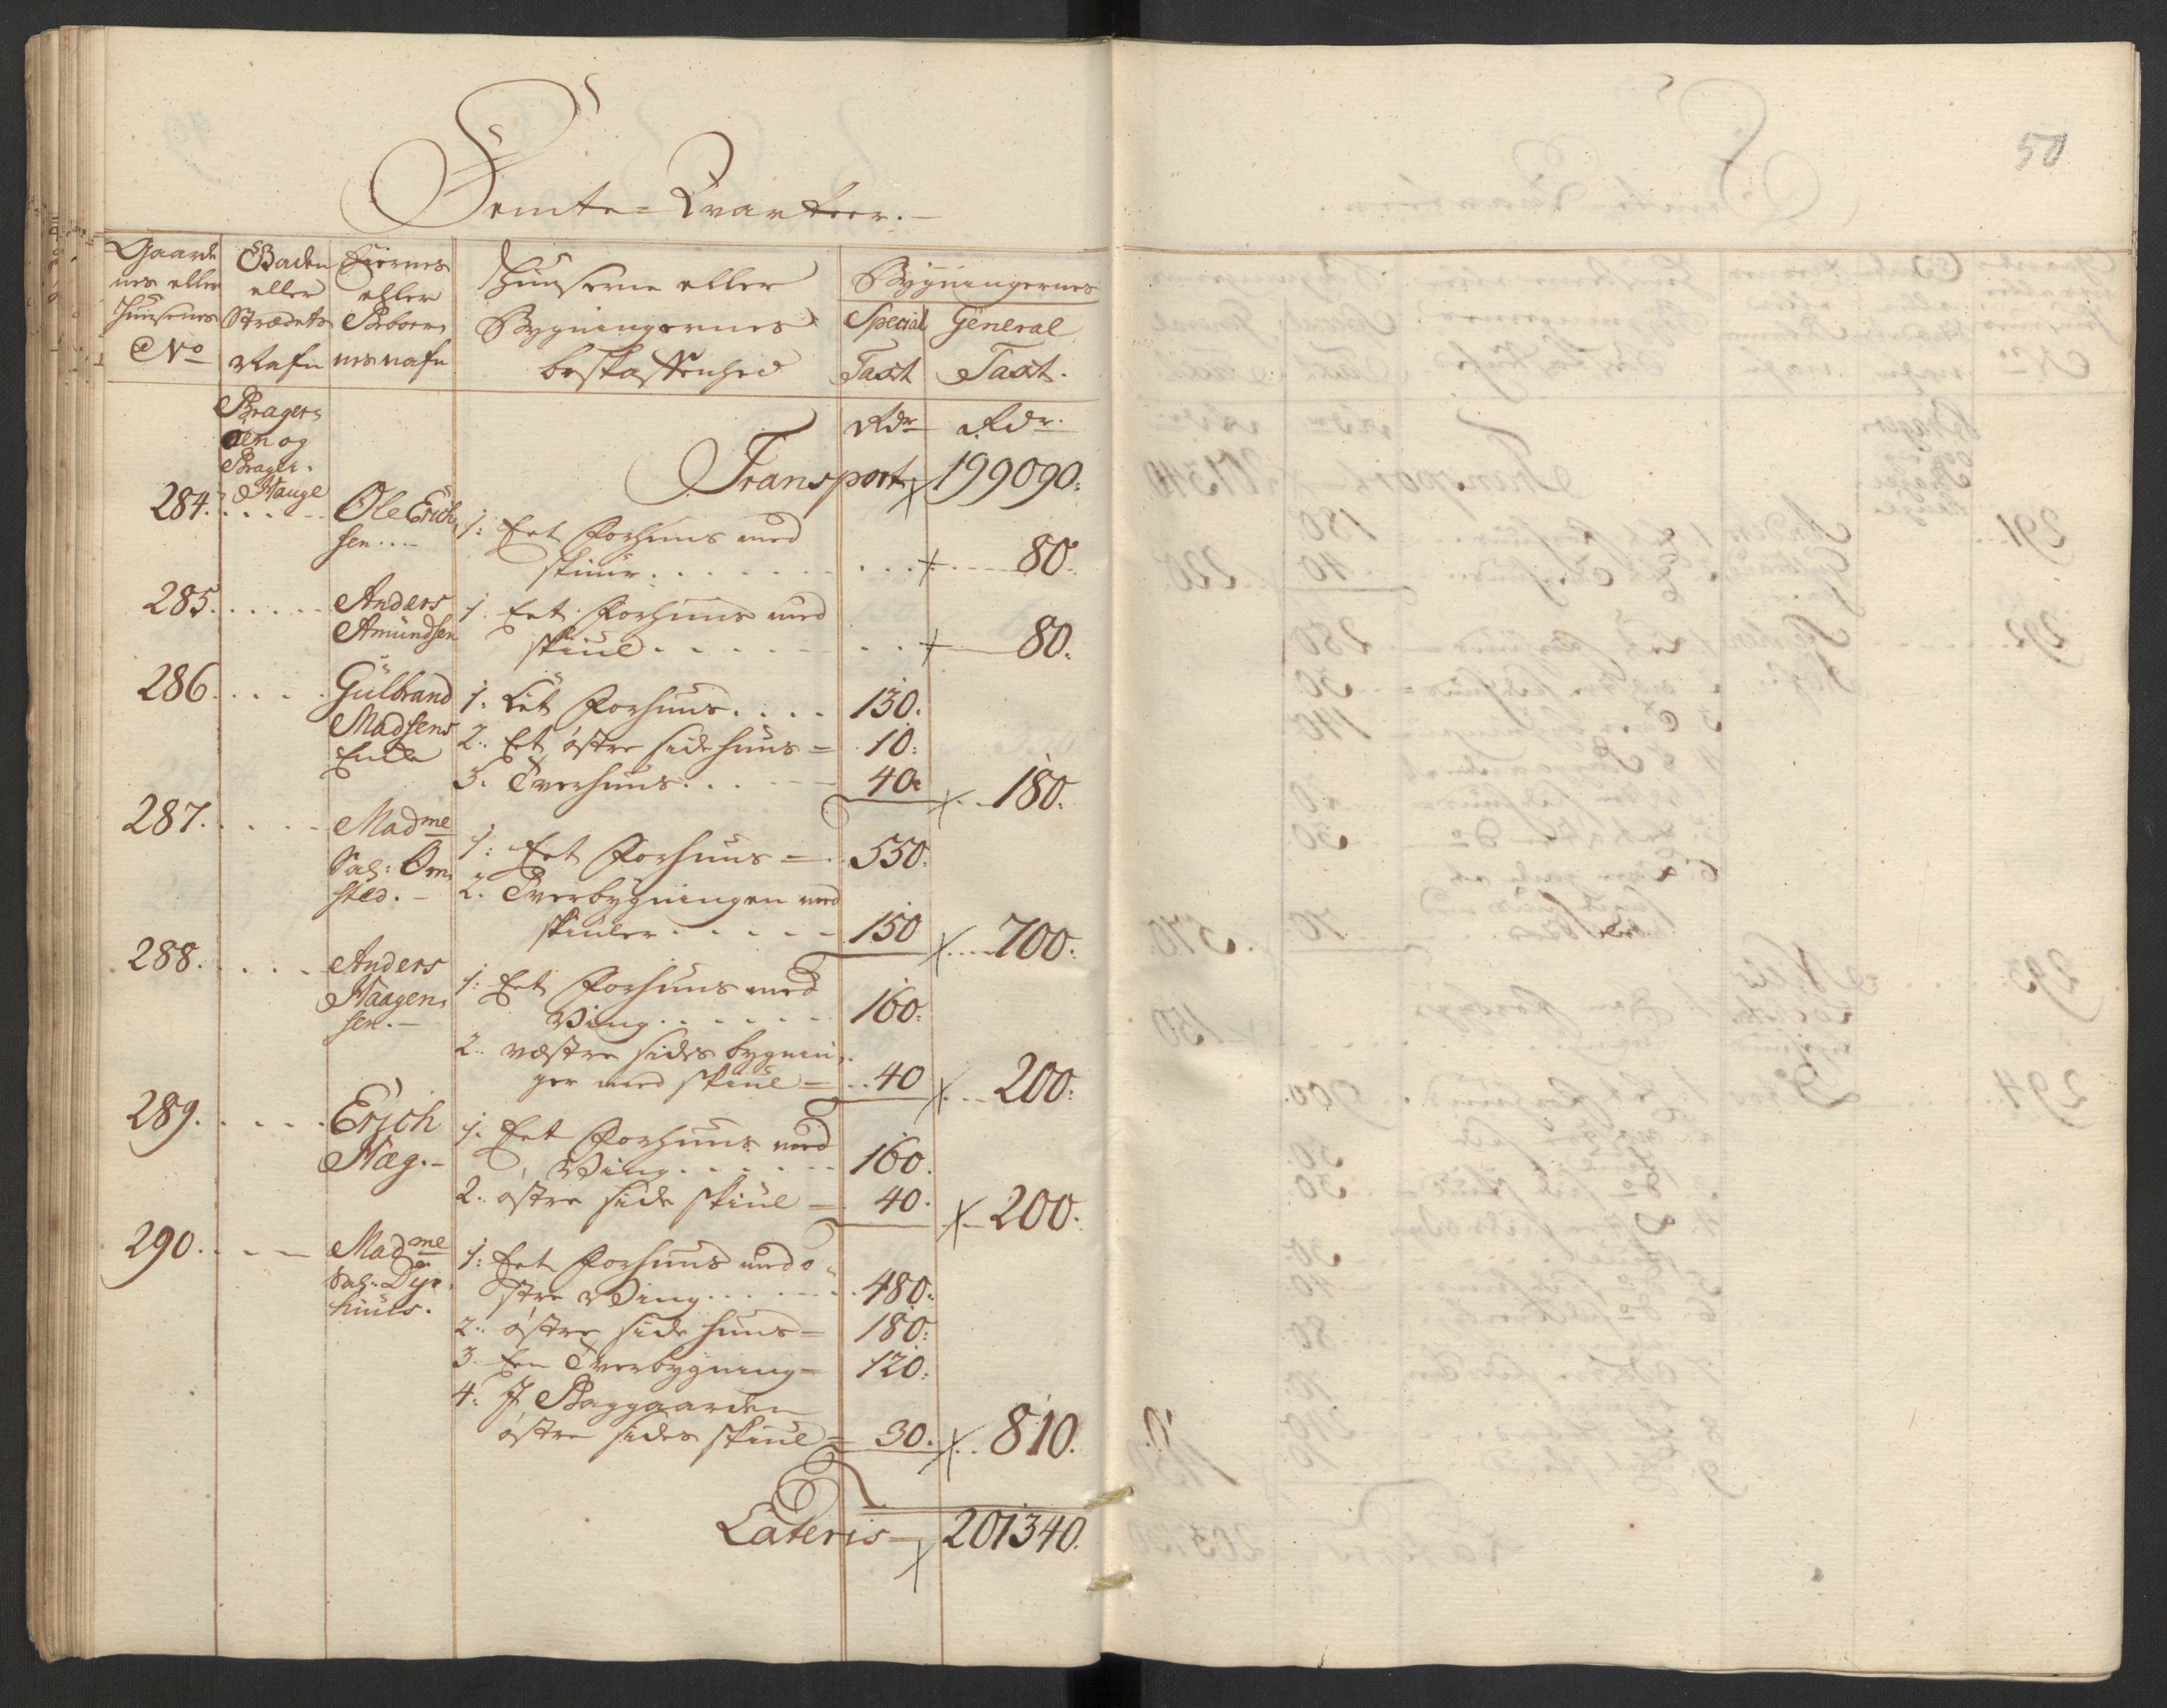 50
Femte = Qvarteer. –
Gaarde
nes eller
Huusenes
No
Gaden
eller
Strædets
Nafn
Eiernes
eller
Beboer,
nes nafn
Huusene eller
Bygningernes
beskaffenhed
Bygningernes
Special Taxt
General Taxt.
Rdr Rdr.
Brager,
æen og
Brager.
Hauge
Transport 199090.
284. Ole Erich,
sen...
1: Eet Forhuus med
skuur. 80.
285. Anders
Amundsen
1. Eet Forhuus med
skiul. 80.
286. Gulbrand
Madsens
Encke
1. Eet Forhuus. 130.
2. Et østre sidehuus = 10.
3. Tverhuus. 40. 180.
287. Madme
Sal: Orn,
sted. –
1: Eet Forhuus = 550.
2. Tverbygningen med
skiuler. 150 700.
288. Anders
Haagen,
sen. –
1: Eet Forhuus med
Ving. 160.
2. vestre sides bygnin,
ger med skiul = 40 200.
289. Erich
Hæg. –
1. Eet Forhuus med
Ving. 160.
2. østre side skiul = 40. 200.
290. Madme
Sal: Dyr,
huus.
1: Eet Forhuus med ø,
stre Ving. 480.
2. østre side huus = 180.
3. Een Tverbygning = 120.
4. J Baggaarden
østre sides skiul = 30. 810.
Lateris 201340.